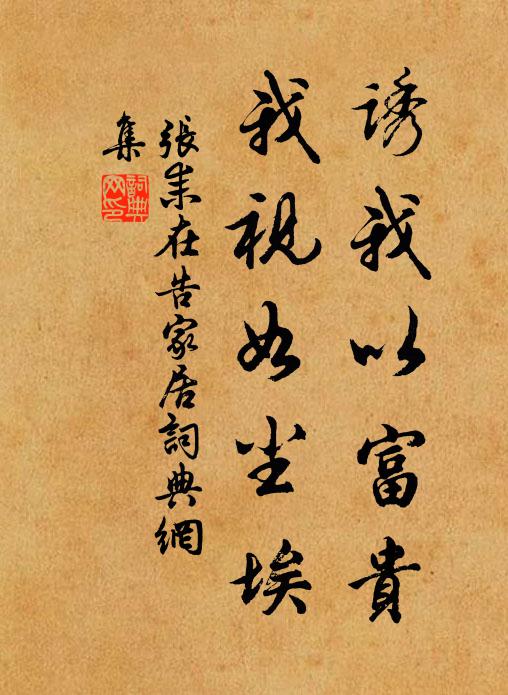 誘我以富貴
我視如尘埃
張耒在告家居詞典網
集
詞典网印